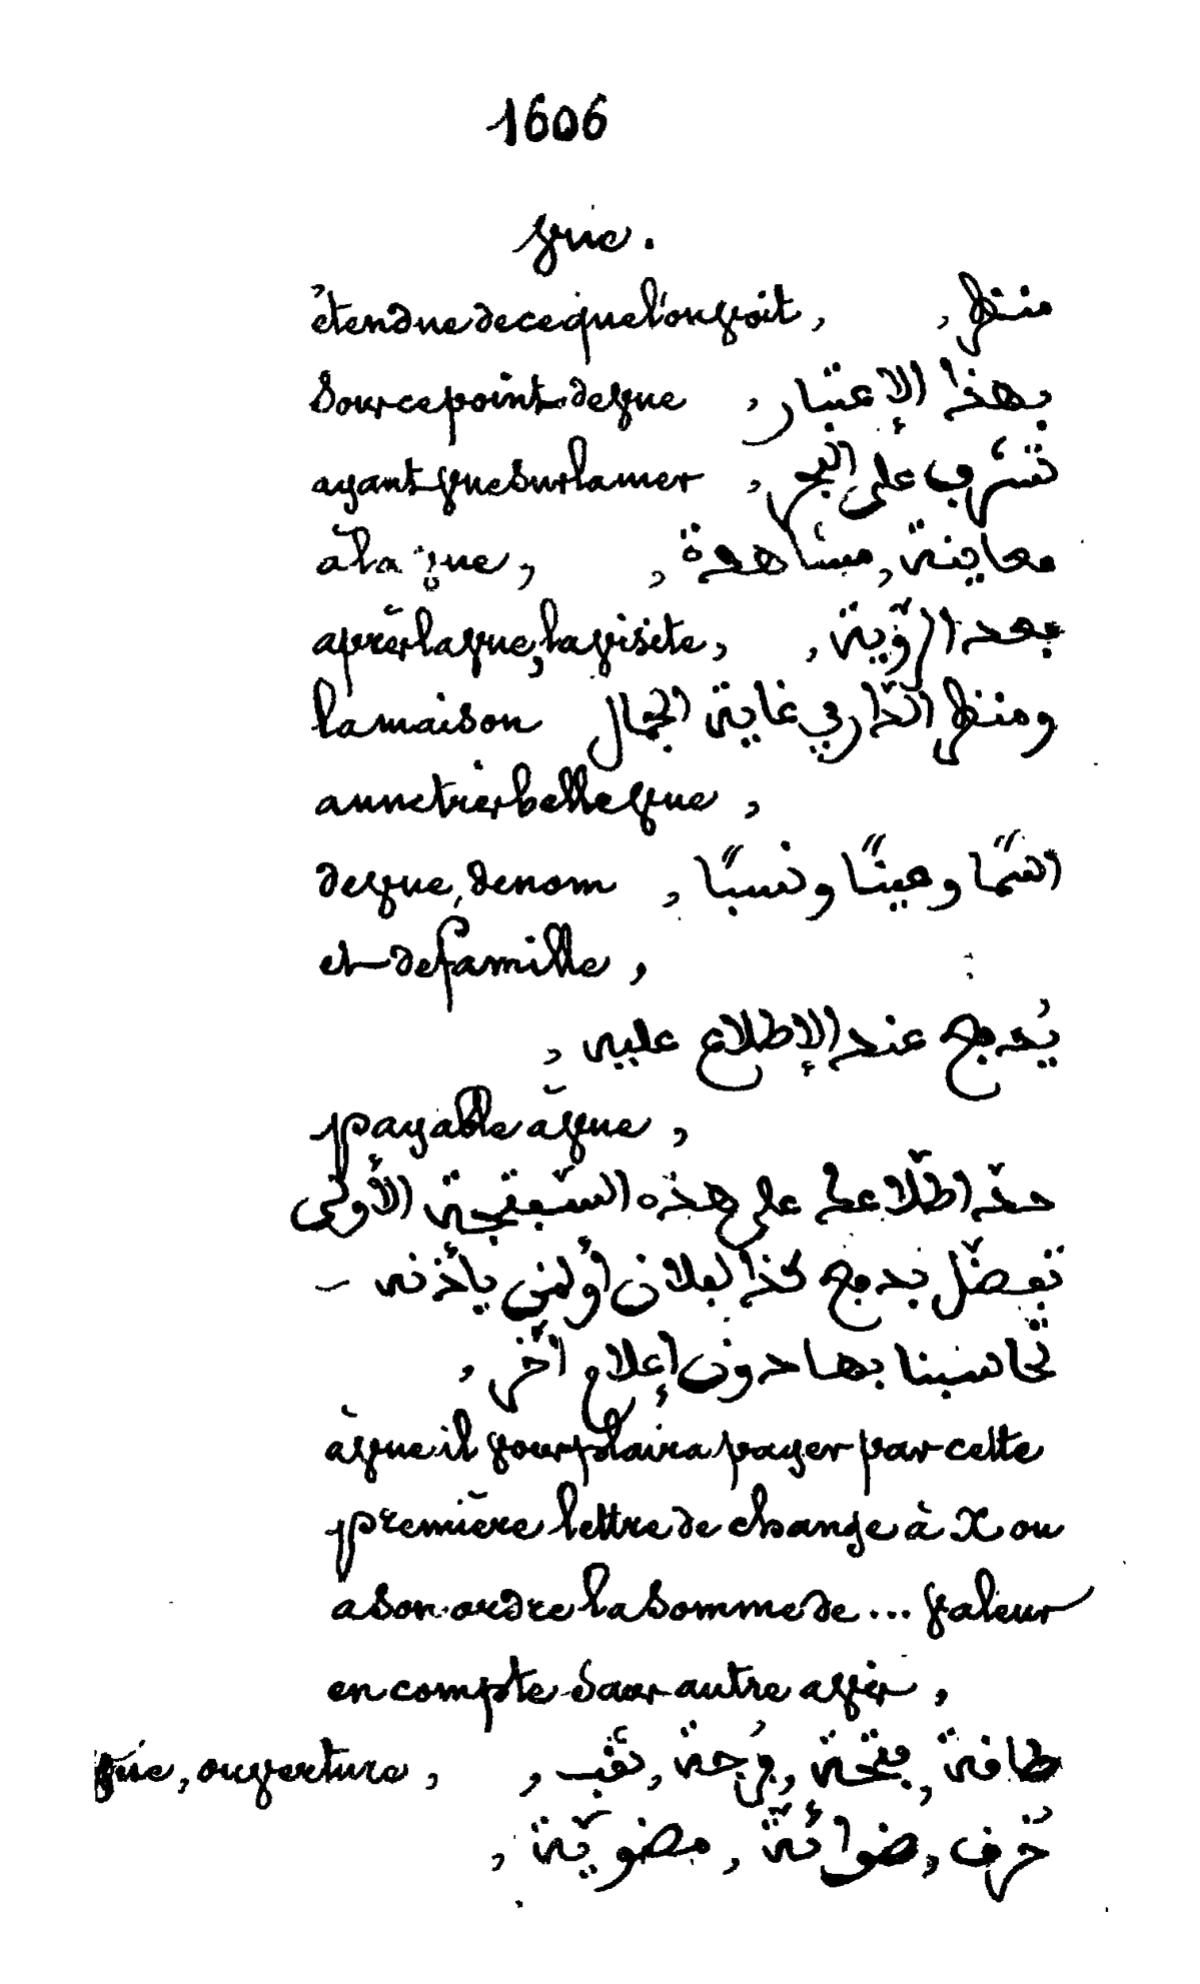 1606
vue.
étendue de ce que l'on voit, منظر,
sous ce point de vue بهذا الإعتبار,
ayant vue sur la mer تشرف على البحر,
à la vue, معاينة, مشاهدة,
après la vue, la visite, بعد الرّؤية,
la maison ومنظر الدّار في غاية الجمال
a une très belle vue,
de vue, de nom اسمًا وعينًا ونسبًا,
et de famille,
يُدفع عند الإطلاع عليه,
payable à vue,
عند اطّلاعكم على هذه السّفتجة الأولى
تفضّل بدفع كذا لفلان أو لمن يأذنه -
تحاسبنا بها دون إعلام آخر,
à vue il vous plaira payer par cette
première lettre de change à X ou
a son ordre la somme de... valeur
en compte sans autre avis,
vue, ouverture, طاقة, فتحة, فُرجة, نقب,
خرق, ضوائة, مضويّة,